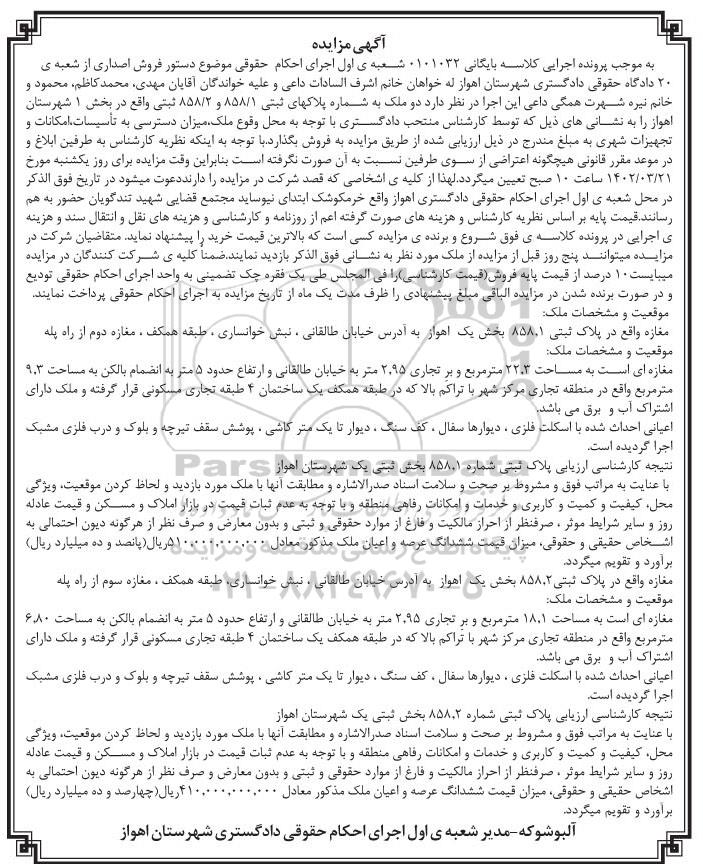 آگهی مزایده
به موجب پرونده اجرایی کلاسه بایگانی ۰۱۰۱۰۳۲ شعبه ی اول اجرای احکام حقوقی موضوع دستور فروش اصداری از شعبه ی
۲۰ دادگاه حقوقی دادگستری شهرستان اهواز له خواهان خانم اشرف السادات داعی و علیه خواندگان آقایان مهدی، محمدکاظم، محمود و
خانم نیره شهرت همگی داعی این اجرا در نظر دارد دو ملک به شماره پلاکهای ثبتی ۸۵۸/۱ و ۸۵۸/۲ ثبتی واقع در بخش ۱ شهرستان
اهواز را به نشانی های ذیل که توسط کارشناس منتخب دادگستری با توجه به محل وقوع ملک،میزان دسترسی به تأسیسات،امکانات و
تجهیزات شهری به مبلغ مندرج در ذیل ارزیابی شده از طریق مزایده به فروش بگذارد.با توجه به اینکه نظریه کارشناس به طرفین ابلاغ و
در موعد مقرر قانونی هیچگونه اعتراضی از سوی طرفین نسبت به آن صورت نگرفته است بنابراین وقت مزایده برای روز یکشنبه مورخ
۱۴۰۲/۰۳/۲۱ ساعت ۱۰ صبح تعیین میگردد.لهذا از کلیه ی اشخاصی که قصد شرکت در مزایده را دارنددعوت میشود در تاریخ فوق الذکر
در محل شعبه ی اول اجرای احکام حقوقی دادگستری اهواز واقع خرمکوشک ابتدای نیوساید مجتمع قضایی شهید تندگویان حضور به هم
رسانند.قیمت پایه بر اساس نظریه کارشناس و هزینه های صورت گرفته اعم از روزنامه و کارشناسی و هزینه های نقل و انتقال سند و هزینه
ی اجرایی در پرونده کلاسه ی فوق شروع و برنده ی مزایده کسی است که بالاترین قیمت خرید را پیشنهاد نماید. متقاضیان شرکت در
مزایده میتوانند پنج روز قبل از مزایده از ملک مورد نظر به نشانی فوق الذکر بازدید نمایند.ضمناً کلیه ی شرکت کنندگان در مزایده
میبایست۱۰ درصد از قیمت پایه فروش(قیمت کارشناسی)را فی المجلس طی یک فقره چک تضمینی به واحد اجرای احکام حقوقی تودیع
و در صورت برنده شدن در مزایده الباقی مبلغ پیشنهادی را ظرف مدت یک ماه از تاریخ مزایده به اجرای احکام حقوقی پرداخت نمایند.
موقعیت و مشخصات ملک:
مغازه واقع در پلاک ثبتی ۸۵۸،۱ بخش یک اهواز به آدرس خیابان طالقانی ، نبش خوانساری ، طبقه همکف ، مغازه دوم از راه پله
موقعیت و مشخصات ملک:
مغازه ای است به مساحت ۲۲،۳ مترمربع و بر تجاری ۲،۹۵ متر به خیابان طالقانی و ارتفاع حدود ۵ متر به انضمام بالکن به مساحت ۹،۳
مترمربع واقع در منطقه تجاری مرکز شهر با تراکم بالا که در طبقه همکف یک ساختمان ۴ طبقه تجاری مسکونی قرار گرفته و ملک دارای
اشتراک آب و برق می باشد.
اعیانی احداث شده با اسکلت فلزی ، دیوارها سفال ، کف سنگ ، دیوار تا یک متر کاشی ، پوشش سقف تیرچه و بلوک و درب فلزی مشبک
اجرا گردیده است.
نتیجه کارشناسی ارزیابی پلاک ثبتی شماره ۸۵۸،۱ بخش ثبتی یک شهرستان اهواز
با عنایت به مراتب فوق و مشروط بر صحت و سلامت اسناد صدرالاشاره و مطابقت آنها با ملک مورد بازدید و لحاظ کردن موقعیت، ویژگی
محل، کیفیت و کمیت و کاربری و خدمات و امکانات رفاهی منطقه و با توجه به عدم ثبات قیمت در بازار املاک و مسکن و قیمت عادله
روز و سایر شرایط موثر ، صرفنظر از احراز مالکیت و فارغ از موارد حقوقی و ثبتی و بدون معارض و صرف نظر از هرگونه دیون احتمالی به
اشخاص حقیقی و حقوقی، میزان قیمت ششدانگ عرصه و اعیان ملک مذکور معادل ۵۱۰,۰۰۰,۰۰۰,۰۰۰ریال(پانصد و ده میلیارد ریال)
برآورد و تقویم میگردد.
مغازه واقع در پلاک ثبتی۸۵۸،۲ بخش یک اهواز به آدرس خیابان طالقانی ، نبش خوانساری، طبقه همکف ، مغازه سوم از راه پله
موقعیت و مشخصات ملک:
مغازه ای است به مساحت ۱۸،۱ مترمربع و بر تجاری ۲،۹۵ متر به خیابان طالقانی و ارتفاع حدود ۵ متر به انضمام بالکن به مساحت ۶،۸۰
مترمربع واقع در منطقه تجاری مرکز شهر با تراکم بالا که در طبقه همکف یک ساختمان ۴ طبقه تجاری مسکونی قرار گرفته و ملک دارای
اشتراک آب و برق می باشد.
اعیانی احداث شده با اسکلت فلزی ، دیوارها سفال ، کف سنگ ، دیوار تا یک متر کاشی ، پوشش سقف تیرچه و بلوک و درب فلزی مشبک
اجرا گردیده است.
نتیجه کارشناسی ارزیابی پلاک ثبتی شماره ۸۵۸،۲ بخش ثبتی یک شهرستان اهواز
با عنایت به مراتب فوق و مشروط بر صحت و سلامت اسناد صدرالاشاره و مطابقت آنها با ملک مورد بازدید و لحاظ کردن موقعیت، ویژگی
محل، کیفیت و کمیت و کاربری و خدمات و امکانات رفاهی منطقه و با توجه به عدم ثبات قیمت در بازار املاک و مسکن و قیمت عادله
روز و سایر شرایط موثر ، صرفنظر از احراز مالکیت و فارغ از موارد حقوقی و ثبتی و بدون معارض و صرف نظر از هرگونه دیون احتمالی به
اشخاص حقیقی و حقوقی، میزان قیمت ششدانگ عرصه و اعیان ملک مذکور معادل ۴۱۰,۰۰۰,۰۰۰,۰۰۰ریال(چهارصد و ده میلیارد ریال)
برآورد و تقویم میگردد.
آلبوشوکه-مدیر شعبه ی اول اجرای احکام حقوقی دادگستری شهرستان اهواز
ParsNamadData
پایگاه اطلاع رسانی مناقصه و مزایده
۰۲۱-۸۸۳۴۹۶۷۰-۵